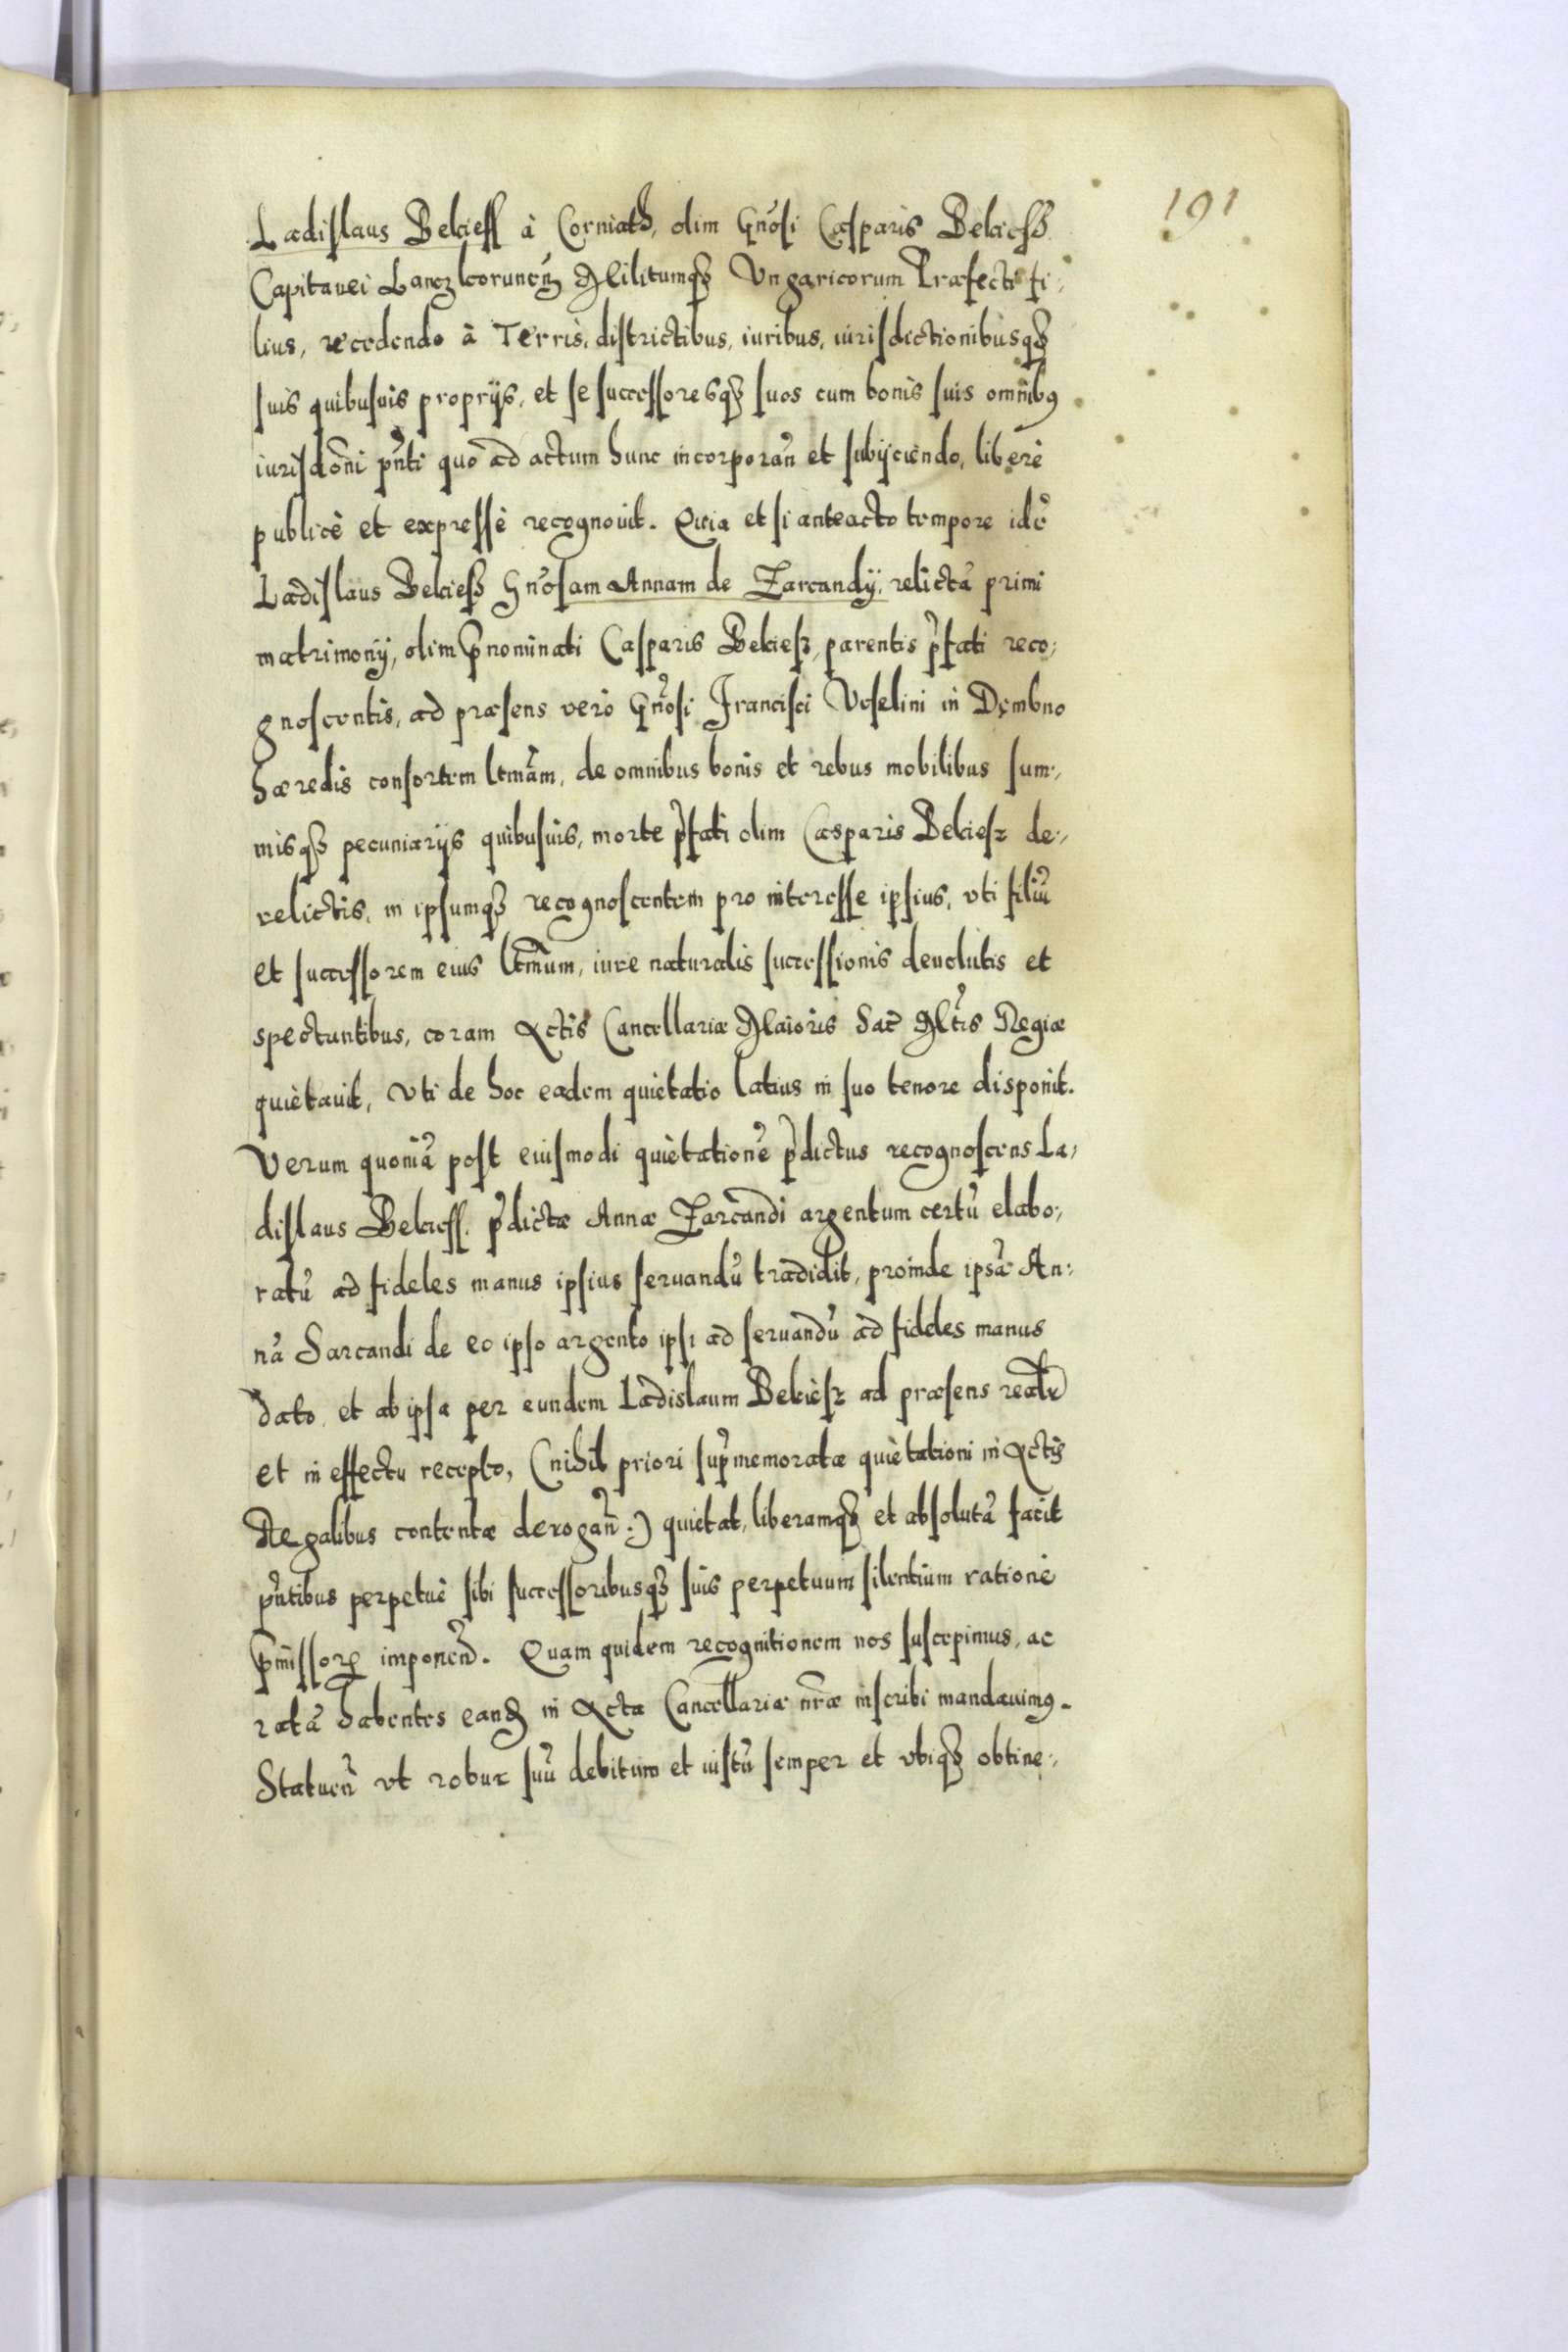 191
Ladislaus Bekiess à Corniath, olim Gnosi Casparis Bekiess
Capitanei Lanczkorunen Militumqз Ungaricorum Præfecti fi:
lius, recedendo à Terris, districtibus, iuribus, iurisdictionibusqз
suis quibusuis proprijs, et se successoresqз suos cum bonis suis omnibꝰ
iurisdoni pñti quo ad actum hunc incorporañ et subijciendo, liberè
publicè et expressè recognouit. Quia et si anteacto tempore idẽ
Ladislaus Bekiess Gnosam Annam de Zarcandÿ, relictã primi
matrimonij, olim p̃nominati Casparis Bekiesz, parentis p̃fati reco:
gnoscentis, ad præsens verò Gñosi Francisci Veselini in Dembno
hæredis consortem ltmãm, de omnibus bonis et rebus mobilibus sum:
misqз pecuniarijs quibusuis, morte p̃fati olim Casparis Bekiesz de:
relictis, in ipsumqз recognoscentem pro interesse ipsius, vti filiũ
et successorem eius ltmũm, iure naturalis successionis deuolutis et
spectuntibus, coram Actis Cancellariæ Maioris Sac̃ Mtis Regiæ
quietauit, vti de hoc eadem quietatio latius in suo tenore disponit.
Verum quoniã post eiusmodi quietationẽ p̃dictus recognoscens La:
dislaus Bekiess. p̃dictæ Annæ Zarcandi argentum certũ elabo:
ratũ ad fideles manus ipsius seruandũ tradidit, proinde ipsã An:
nã Sarcandi de eo ipso argento ipsi ad seruandũ ad fideles manus
dato et ab ipsa per eundem Ladislaum Bekiesz ad præsens realr̃
et in effectu recepto, (nihil priori sup̃memoratæ quietationi in Actis
Regalibus contentæ derogañ:) quietat, liberamqз et absolutã facit
p̃ntibus perpetuè sibi successoribusqз suis perpetuum silentium ratione
p̃missorꝝ imponeñd. Quam quidem recognitionem nos suscepimus, ac
ratã habentes eandз in Acta Cancellariæ nr̃æ inscribi mandauimꝰ.
Statueñ vt robur suũ debitum et iustũ semper et vbiqз obtine: